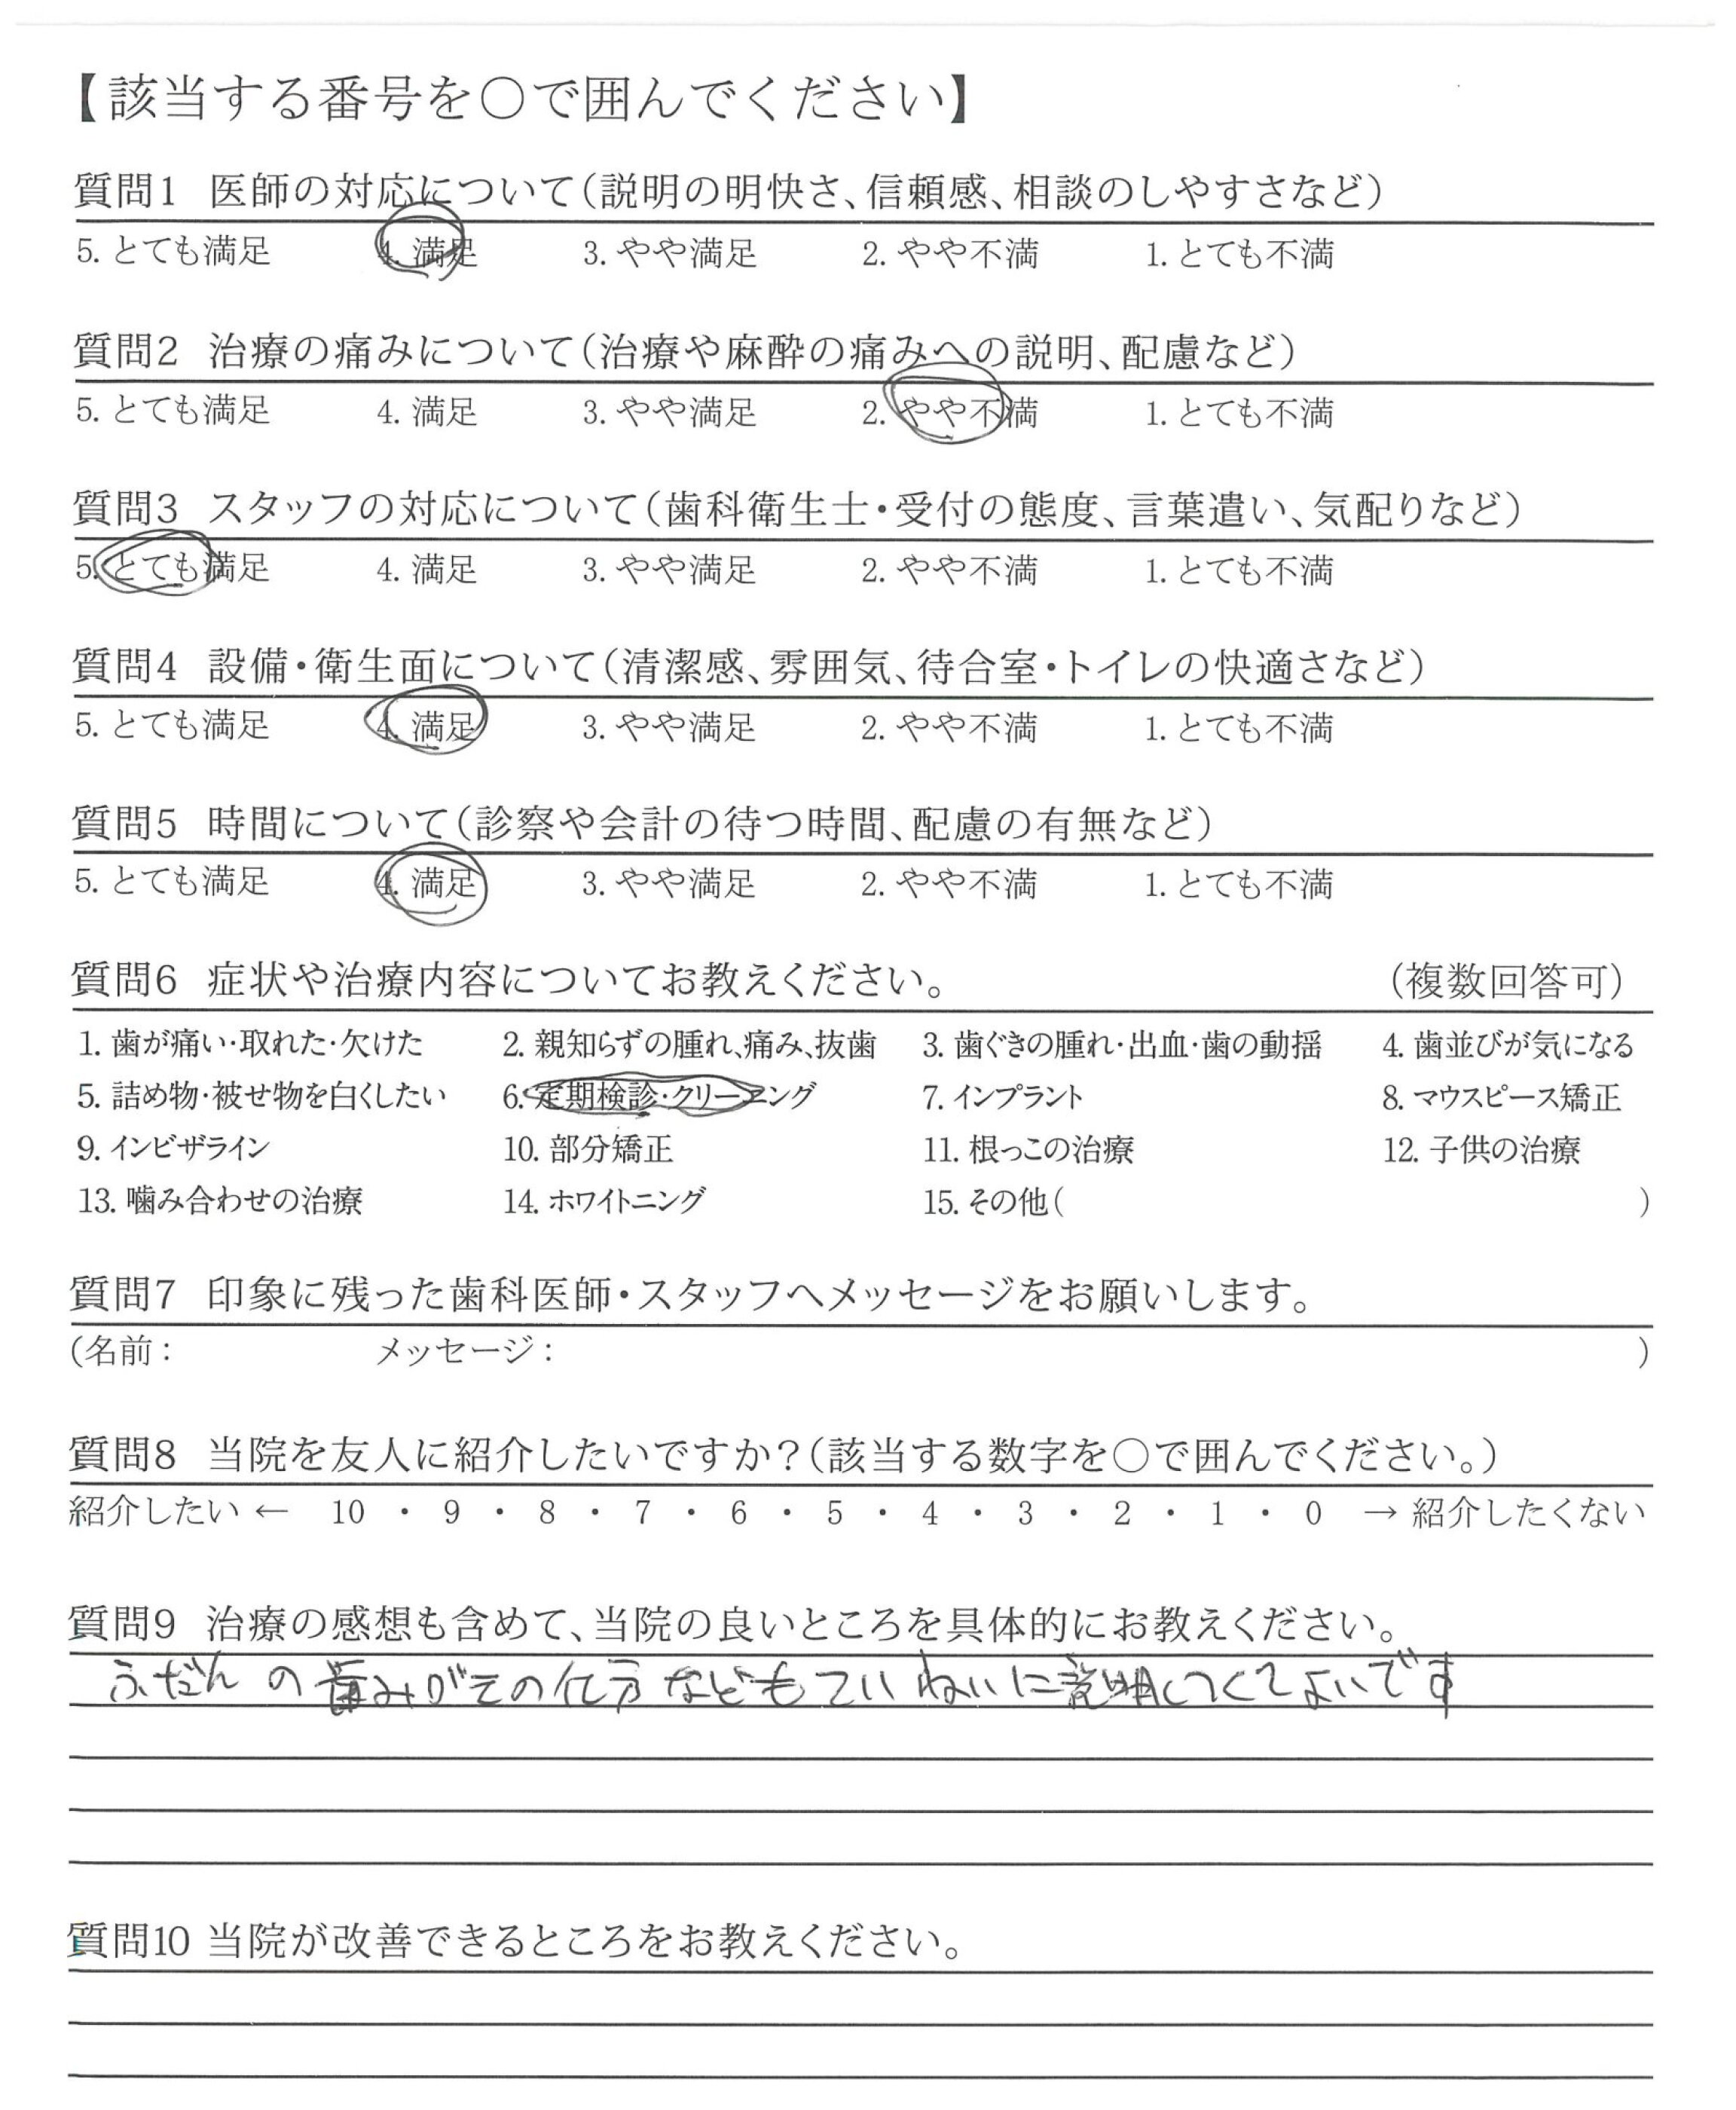 【該当する番号を○で囲んでください】
質問1 医師の対応について（説明の明快さ、信頼感、相談のしやすさなど）
5. とても満足 4. 満足 3. やや満足 2. やや不満 1. とても不満
質問2 治療の痛みについて（治療や麻酔の痛みへの説明、配慮など）
5. とても満足 4. 満足 3. やや満足 2. やや不満 1. とても不満
質問3 スタッフの対応について（歯科衛生士・受付の態度、言葉遣い、気配りなど）
5. とても満足 4. 満足 3. やや満足 2. やや不満 1. とても不満
質問4 設備・衛生面について（清潔感、雰囲気、待合室・トイレの快適さなど）
5. とても満足 4. 満足 3. やや満足 2. やや不満 1. とても不満
質問5 時間について（診察や会計の待つ時間、配慮の有無など）
5. とても満足 4. 満足 3. やや満足 2. やや不満 1. とても不満
質問6 症状や治療内容についてお教えください。 （複数回答可）
1. 歯が痛い・取れた・欠けた 2. 親知らずの腫れ、痛み、抜歯 3. 歯ぐきの腫れ・出血・歯の動揺 4. 歯並びが気になる
5. 詰め物・被せ物を白くしたい 6. 定期検診・クリーニング 7. インプラント 8. マウスピース矯正
9. インビザライン 10. 部分矯正 11. 根っこの治療 12. 子供の治療
13. 噛み合わせの治療 14. ホワイトニング 15. その他（ ）
質問7 印象に残った歯科医師・スタッフへメッセージをお願いします。
（名前： メッセージ： ）
質問8 当院を友人に紹介したいですか？（該当する数字を○で囲んでください。）
紹介したい ← 10 ・ 9 ・ 8 ・ 7 ・ 6 ・ 5 ・ 4 ・ 3 ・ 2 ・ 1 ・ 0 → 紹介したくない
質問9 治療の感想も含めて、当院の良いところを具体的にお教えください。
ふだんの歯みがきの仕方などもていねいに説明してくてよいです
質問10 当院が改善できるところをお教えください。